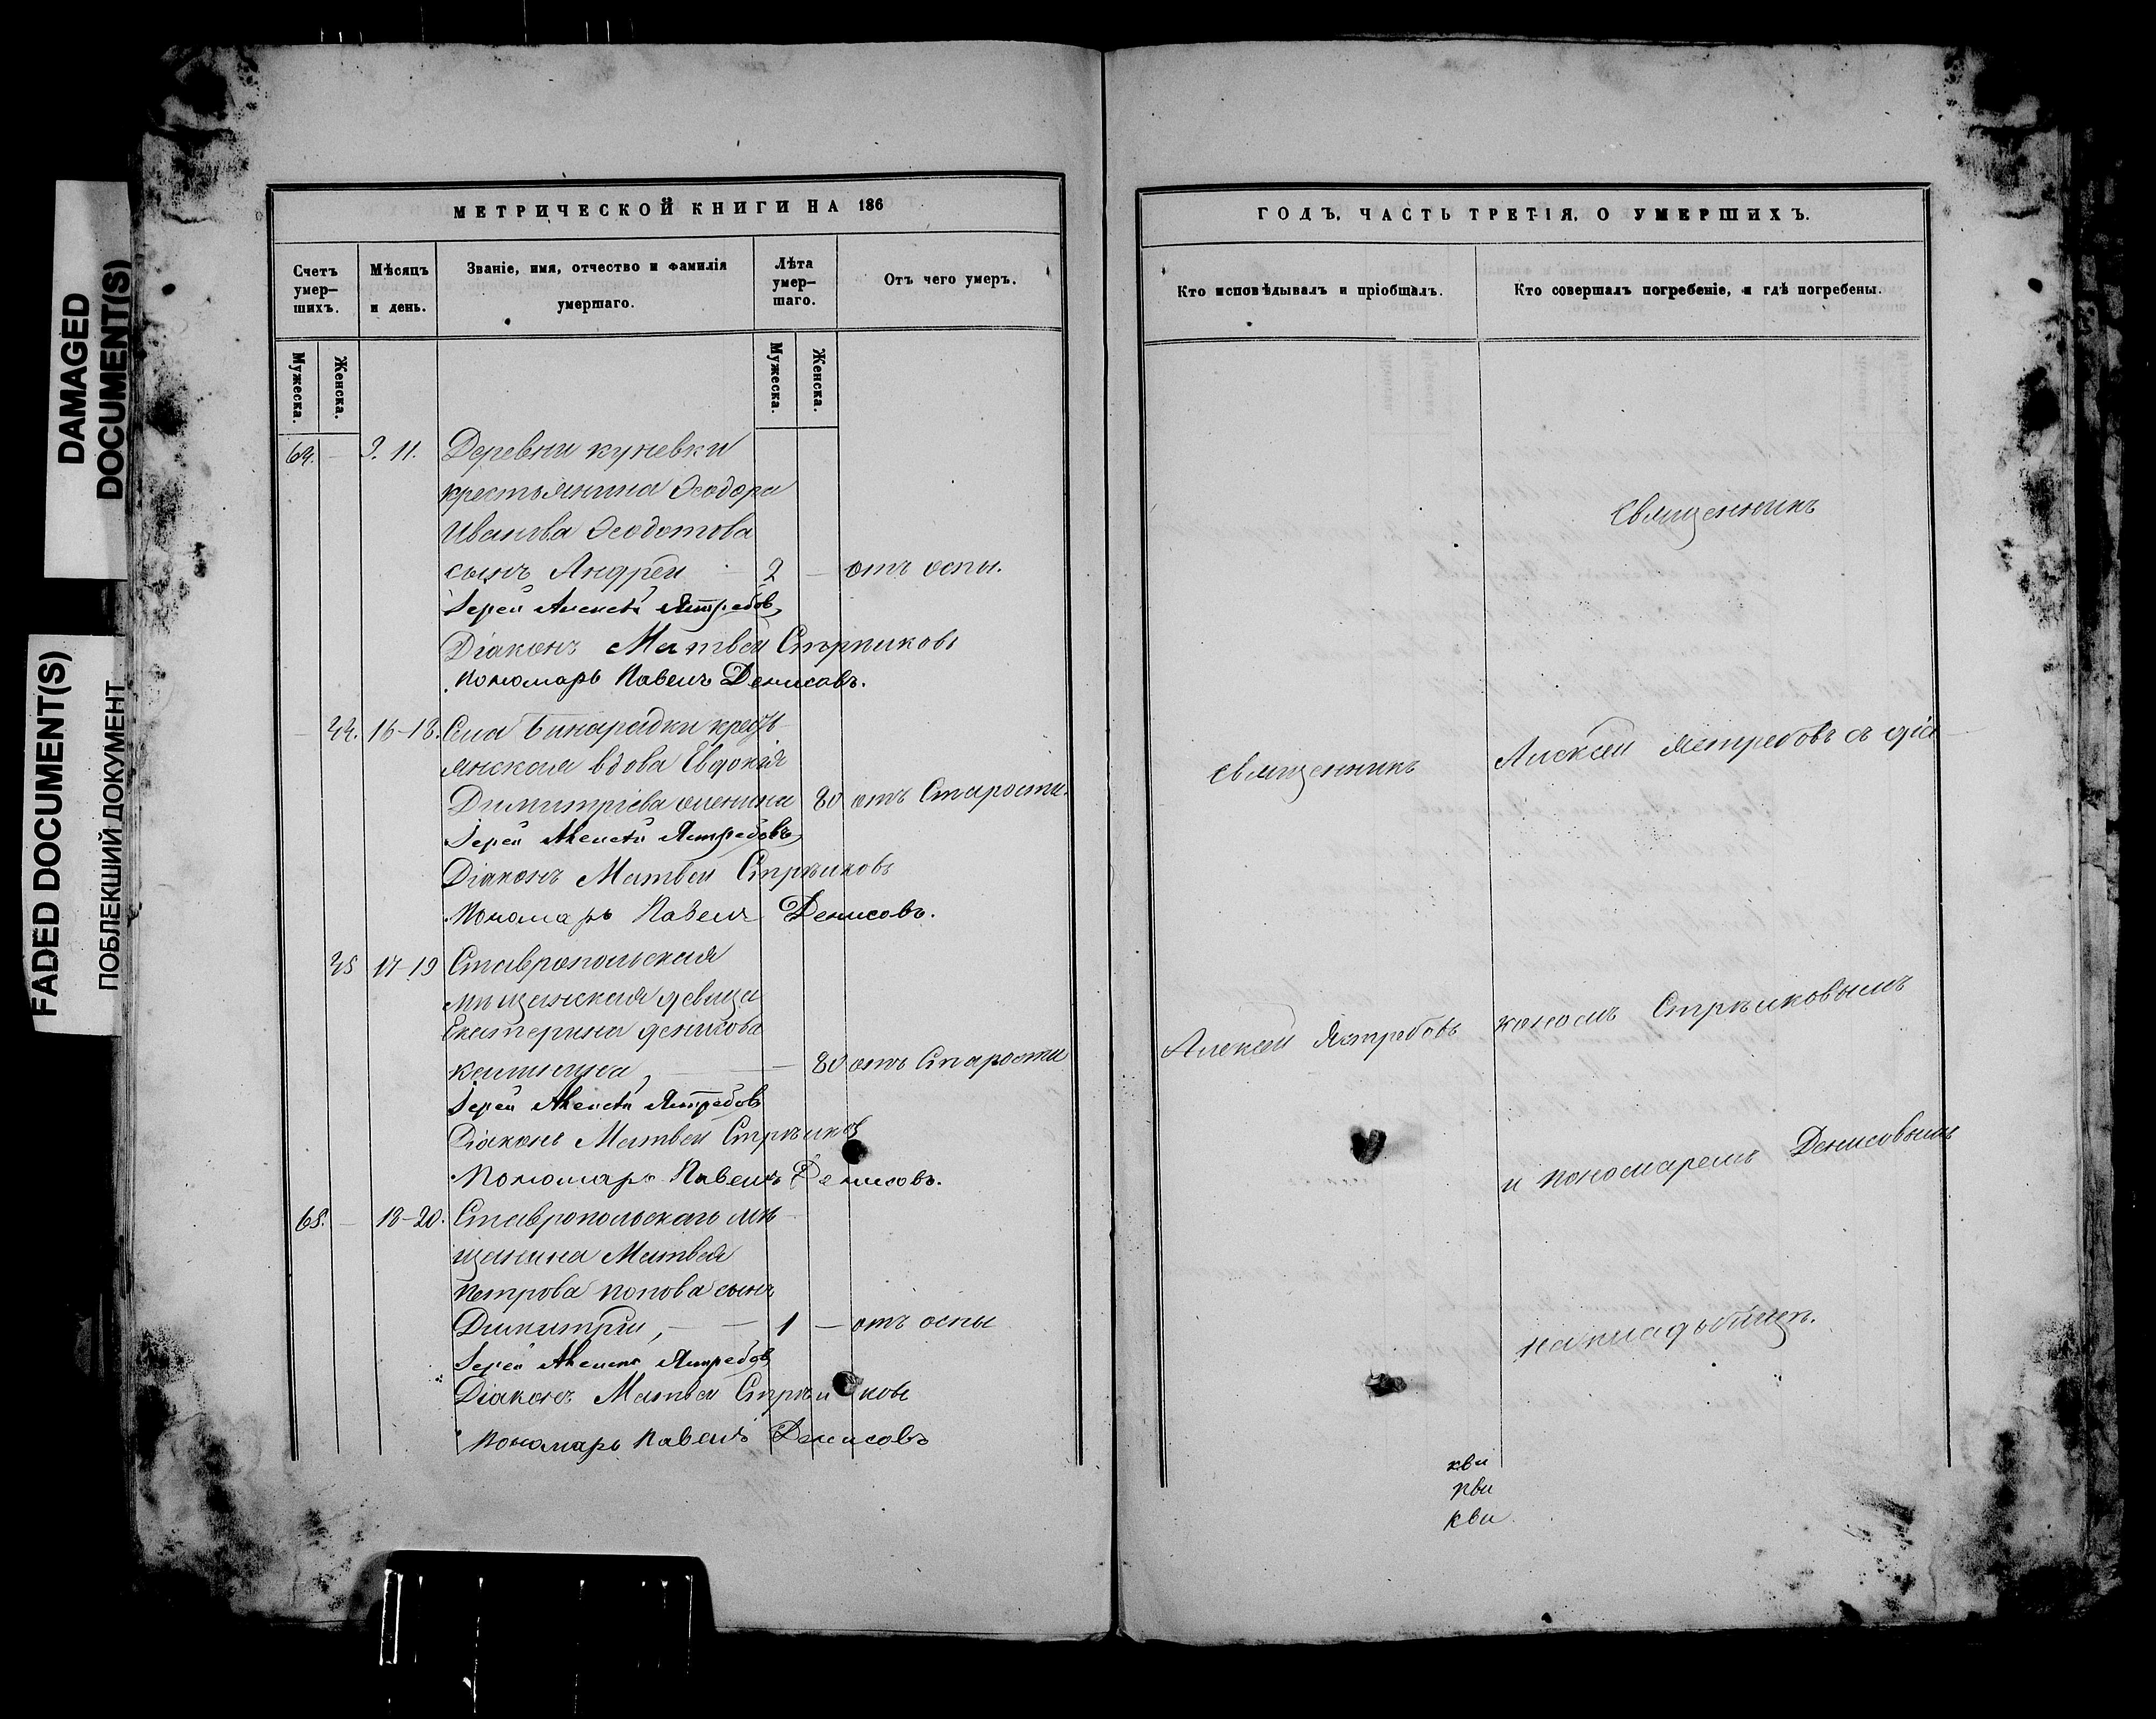 DAMAGED
DOCUMENT(S)
FADED DOCUMENT(S)
ПОБЛЕКШИЙ ДОКУМЕНТ
МЕТРИЧЕСКОЙ КНИГИ НА 186
Счетъ умер-шихъ.
Мѣсяцъ и день.
Званіе, имя, отчество и фамилія умершаго.
Лѣта умер-шаго.
Отъ чего умеръ.
Мужеска.
Женска.
Мужеска.
Женска.
64. — 9. 11. Деревни Куневки
крестьянина Ѳеодора
Иванова Ѳеодотова
сынъ Андрей — 2 — отъ оспы.
Іерей Алексѣй Ястребовъ
Діаконъ Матвей Стрѣлковъ
Пономарь Павелъ Денисовъ.
— 44. 16-18. Села Бинарадки кресть-
янская вдова Евдокія
Димитріева 80 отъ Старости.
Іерей Алексѣй Ястребовъ
Діаконъ Матвей Стрѣлковъ
Пономарь Павелъ Денисовъ.
45 17-19 Ставропольская
мѣщанская девица
Екатерина
— 80 отъ Старости
Іерей Алексѣй Ястребовъ
Діаконъ Матвей Стрѣлковъ
Пономарь Павелъ Денисовъ.
65. — 18-20. Ставропольскаго мѣ-
щанина Матвея
Петрова Попова сынъ
Димитрій, — 1 — отъ оспы
Іерей Алексѣй Ястребовъ
Діаконъ Матвей Стрѣлковъ
Пономарь Павелъ Денисовъ
ГОДЪ, ЧАСТЬ ТРЕТІЯ, О УМЕРШИХЪ.
Кто исповѣдывалъ и пріобщалъ.
Кто совершалъ погребеніе, и гдѣ погребены.
Священникъ
Алексей Ястребовъ
Священникъ
Алексей Ястребовъ съ діа-
кономъ Стрѣлковымъ
и Пономаремъ Денисовымъ
на кладбищѣ.